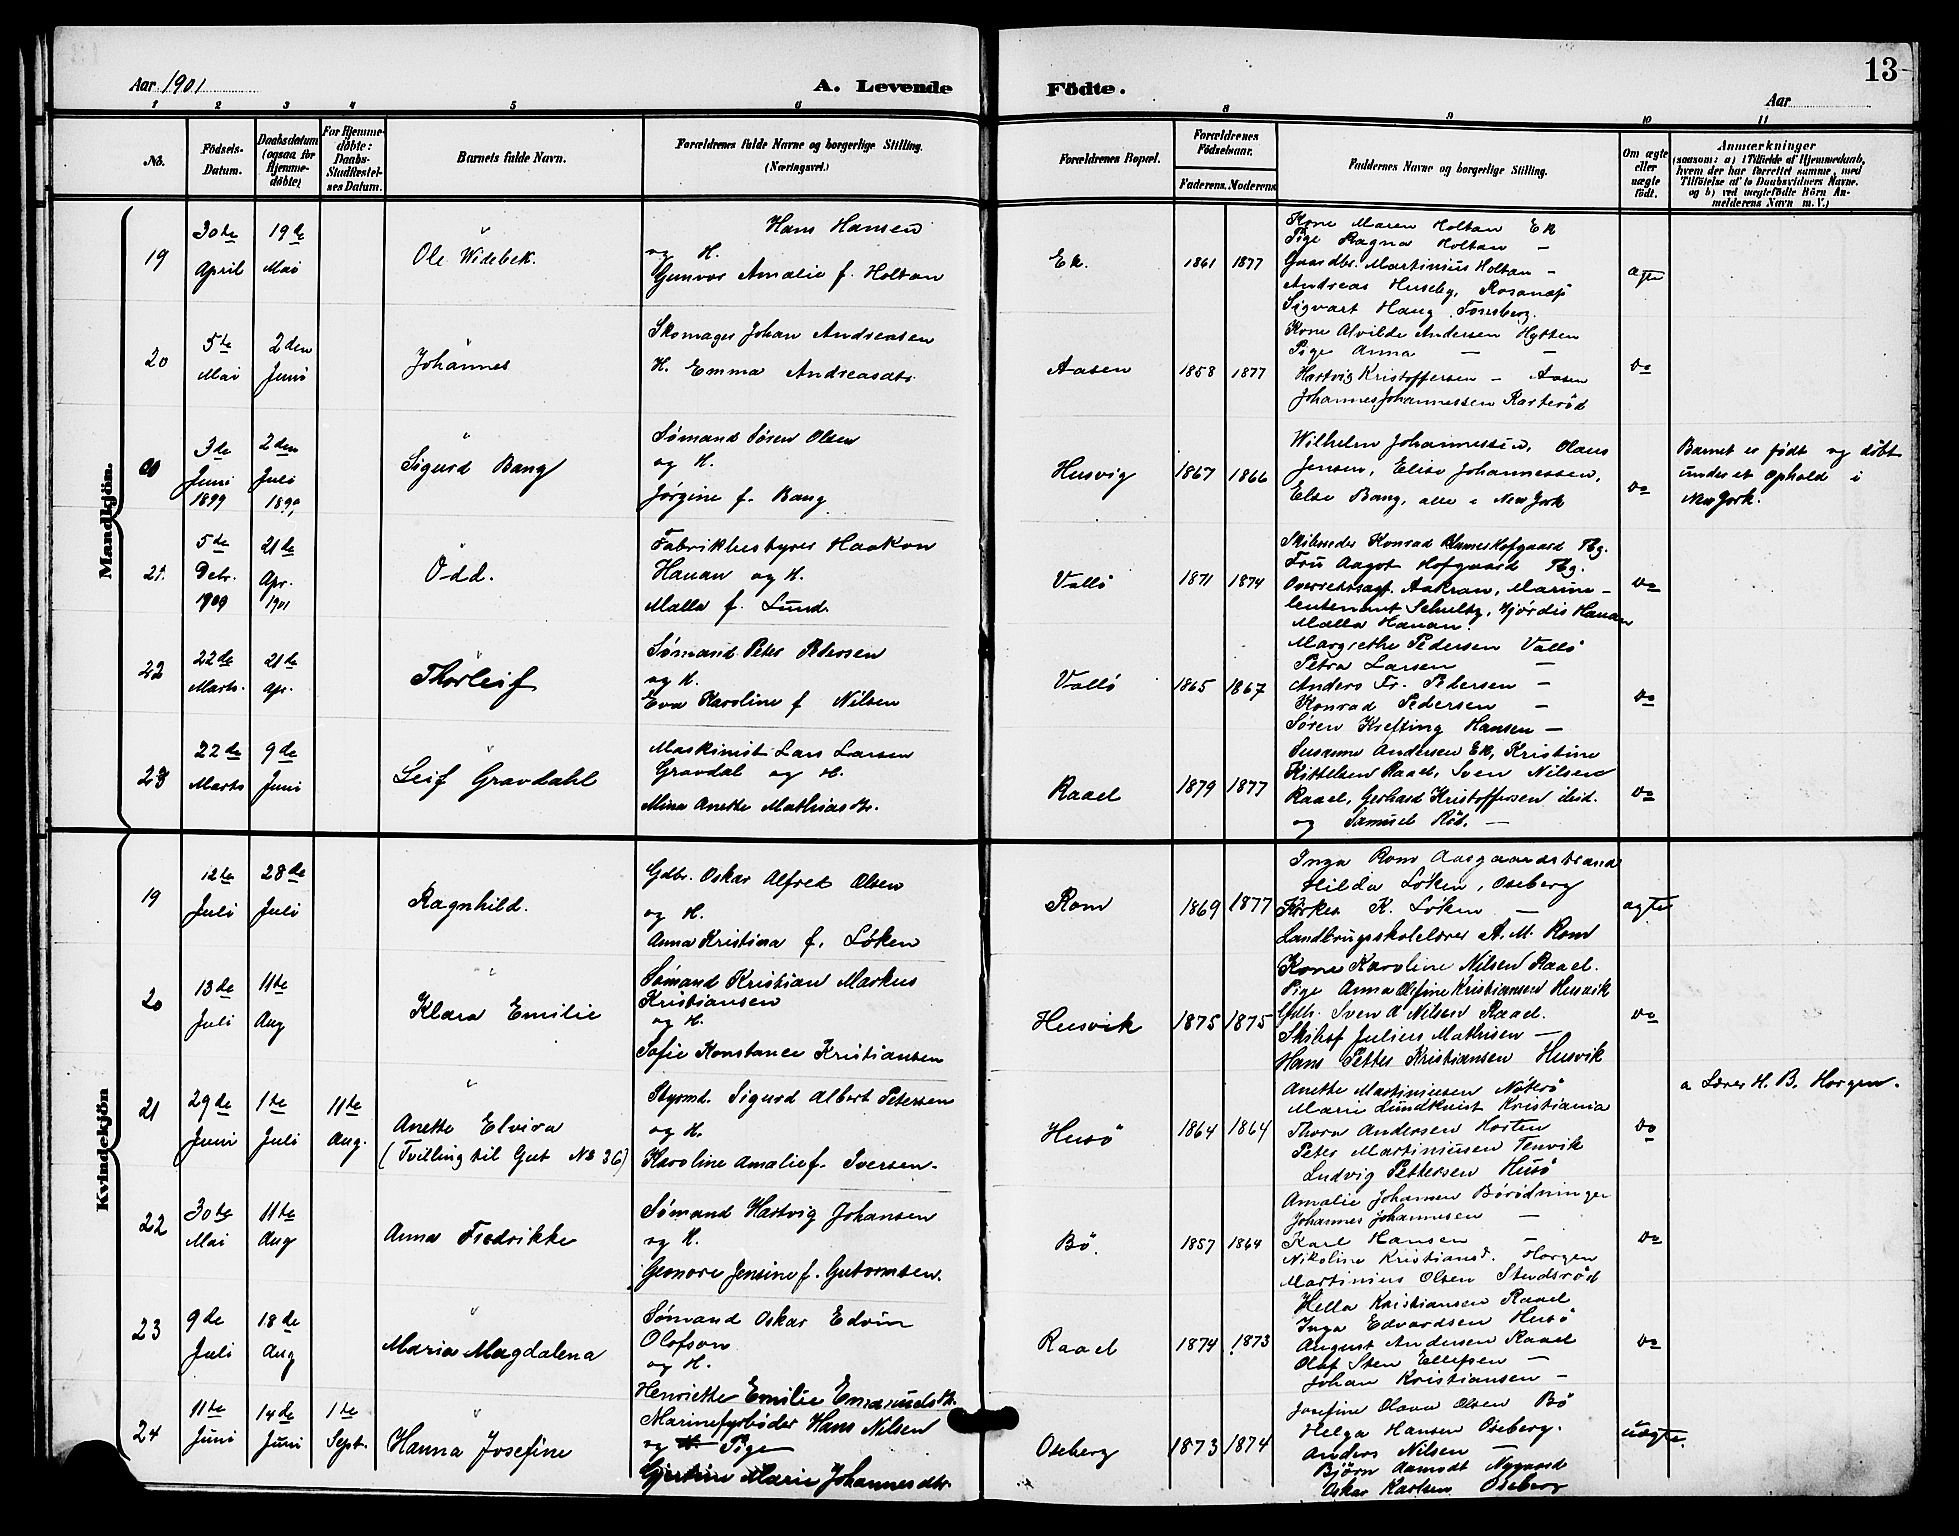 Aar 1901
A. Levende
Födte.
Aar
13
1 2 3 4 5 6 8 9 10 11
No.
Födsels-Datum.
Daabsdatum (ogsaa for Hjemmedöbte)
For Hjemmedöbte: Daabs-Stadfæstelses Datum.
Barnets fulde Navn.
Forældrenes fulde Navne og borgerlige Stilling. (Næringsvei.)
Forældrenes Bopæl.
Forældrenes Födselsaar.
Faderens. Moderens
Faddernes Navne og borgerlige Stilling.
Om ægte eller uægte födt.
Anmærkninger
(saasom: a) i Tilfælde af Hjemmedaab, hvem der har forrettet samme, med Tilföielse af to Daabsvidners Navne. og b) ved uægtefödte Börn Anmelderens Navn m. V.)
Mandkjön.
19
30te April
19de Mai
Ole Widebek.
Hans Hansen
og H.
Gunvor Amalie f. Holtan
Ek.
1861 1877
Kone Maren Holtan Ek
Pige Ragna Holtan —
Gaardbr. Martinius Holtan —
Andreas Huseby, Rosanæs
Sigvart Haug, Tönsberg.
ægte
20
5te Mai
2den Juni
Johannes
Skomager Johan Andreasen
H. Emma Andreasdtr.
Aasen
1858 1877
Kone Alvilde Andersen Hytten
Pige Anna — —
Hartvig Kristoffersen — Aasen
Johannes Johannessen Rasterød
Do
3de Juni 1899
2den Juli 1899
Sigurd Bang
Sømand Søren Olsen
og H.
Jørgine f. Bang
Husvig
1867 1866
Wilhelm Johannessen, Olaus
Jensen, Elise Johannessen,
Else Bang, alle i New York
Do
Barnet er født og døbt
under et Ophold i
New York.
21.
5te Debr. 1900
21de Apr. 1901
Odd.
Fabrikbestyrer Haakon
Hauan og H.
Malla f. Lund.
Vallö
1871 1874
Skibsreder Konrad Hofgaard Tbg.
Fru Aagot Hofgaard Tbg.
Overretssagf. Aakran, Marine-
leutenant Schultz, Hjördis Hauan
Malla Hauan.
Do
22
22de Marts.
21de Apr.
Thorleif
Sømand Peter Petersen
og H.
Eva Karoline f Nilsen
Vallö
1865 1867
Margrethe Pedersen Vallö
Petra Larsen —
Anders Fr. Petersen —
Konrad Pedersen —
Søren Krefting Hansen —
Do
23
22de Marts
9de Juni
Leif Gravdahl
Maskinist Lars Larsen
Gravdal og H.
Mina Anette Mathiasdtr.
Raael
1879 1877
Susanne Andersen Ek, Kristine
Kittelsen Raael, Sven Nilsen
Raael, Gerhard Kristoffersen ibid.
og Samuel Röd. —
Do
Kvindekjön
19
12te Juli
28de Juli
Ragnhild.
Gdbr. Oskar Alfred Olsen
og H.
Anna Kristina f. Løken
Rom
1869 1877
Inga Rom Aasgaardstrand
Hilda Løken, Oseberg
K. Løken —
Landbrugsskolelærer A. M. Rom
ægte
20
13de Juli
11te Aug
Klara Emilie
Sømand Kristian Markus
Kristiansen
og H.
Sofie Konstance Kristiansen
Husvik
1875 1875
Kone Karoline Nilsen Raael.
Pige Anna Olefine Kristiansen Husvik
Gdb. Sven A Nilsen Raael.
Skibsf Julius Mathisen —
Hans Petter Kristiansen Husvik
Do
21
29de Juni
1te Juli
11te Aug.
Anette Elvira
(Tvilling til Gut No 36)
Styrmd. Sigurd Albert Petersen
og H.
Karoline Amalie f. Iversen.
Husö
1864 1864
Anette Martiniussen Nöterö
Marie Lundkvist Kristiania
Thora Andersen Horten
Peter Martiniussen Tenvik
Ludvig Pettersen Husö
Do
a Lærer H. B. Horgen.
22
30te Mai
11te Aug
Anna Fredrikke
Sømand Hartvig Johansen
og H.
Geonore Jensine f. Gutormsen.
Bö.
1857 1864
Amalie Johansen Börödninger
Johannes Johannesen —
Karl Hansen —
Nikoline Kristiansd. Horgen
Martinius Olsen Studsröd
Do
23
9de Juli
18de Aug
Maria Magdalena
Sømand Oskar Edvin
Olofson
og H.
Henriette Emilie Emanuelsdtr.
Raael
1874 1873
Hella Kristiansen Raael
Inga Edvardsen Husö
August Andersen Raael
Olaf Sten Ellefsen —
Johan Kristiansen —
Do
24
11te Juni
14de Juni
1te Sept.
Hanna Josefine
Marinefyrböder Hans Nilsen
og H. Pige
Gjertine Marie Johannesdtr.
Oseberg
1873 1874
Josefine Olava Olsen Bö
Helga Hansen Oseberg.
Anders Nilsen —
Björn Aamodt Nygaard
Oskar Karlsen Oseberg
uægte.